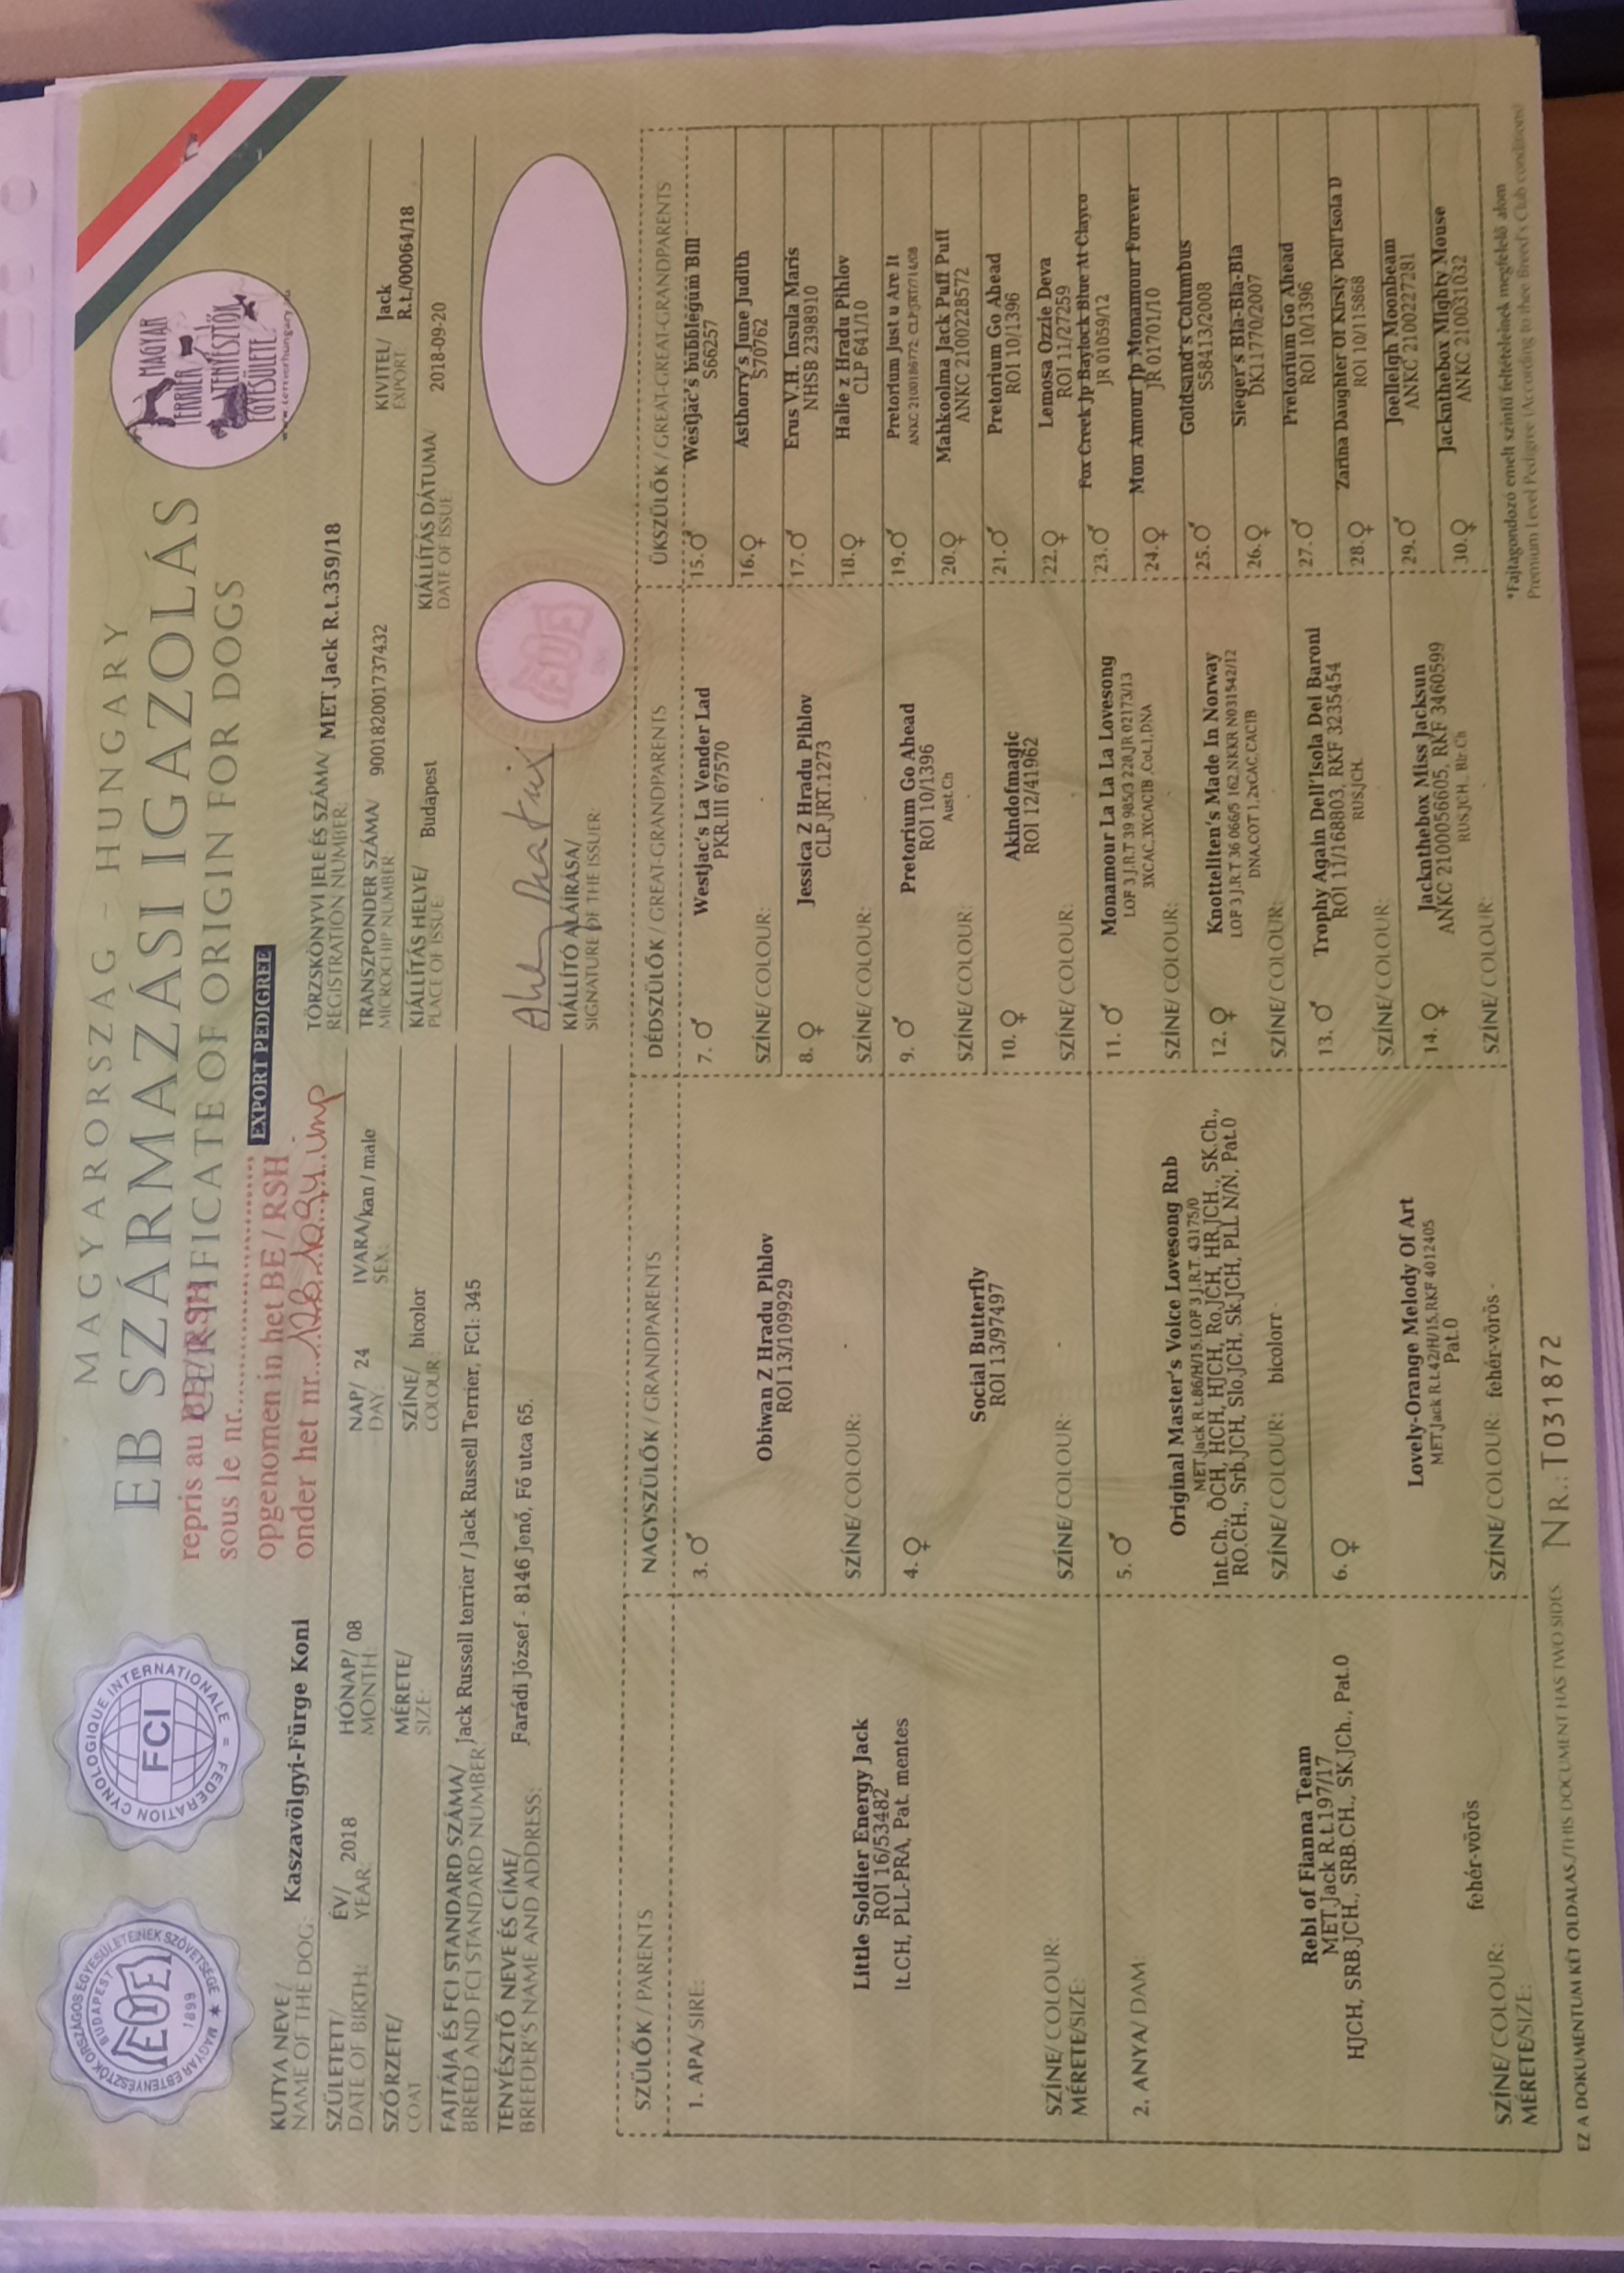 MAGYARORSZÁG - HUNGARY
EB SZÁRMAZÁSI IGAZOLÁS
CERTIFICATE OF ORIGIN FOR DOGS
EXPORT PEDIGREE
MAGYAR EBTENYÉSZTŐK ORSZÁGOS EGYESÜLETEINEK SZÖVETSÉGE
BUDAPEST
1899
FEDERATION CYNOLOGIQUE INTERNATIONALE
FCI
MAGYAR
TERRIER
TENYÉSZTŐK
EGYESÜLETE
repris au BE/RSH
sous le nr.
opgenomen in het BE / RSH
onder het nr.
KUTYA NEVE/ Kaszavölgyi-Fürge Koni
NAME OF THE DOG:
TÖRZSKÖNYVI JELE ÉS SZÁMA/ MET.Jack R.t.359/18
REGISTRATION NUMBER:
SZÜLETETT/ ÉV/ 2018 HÓNAP/ 08 NAP/ 24 IVARA/kan / male
DATE OF BIRTH: YEAR: MONTH: DAY: SEX:
TRANSZPONDER SZÁMA/ 900182001737432 KIVITEL/ Jack
MICROCHIP NUMBER: EXPORT: R.t./00064/18
SZŐRZETE/ MÉRETE/ SZÍNE/ bicolor
COAT SIZE: COLOUR:
KIÁLLÍTÁS HELYE/ Budapest KIÁLLÍTÁS DÁTUMA/ 2018-09-20
PLACE OF ISSUE: DATE OF ISSUE:
FAJTÁJA ÉS FCI STANDARD SZÁMA/ Jack Russell terrier / Jack Russell Terrier, FCI: 345
BREED AND FCI STANDARD NUMBER:
TENYÉSZTŐ NEVE ÉS CÍME/ Farádi József - 8146 Jenő, Fő utca 65.
BREEDER'S NAME AND ADDRESS:
KIÁLLÍTÓ ALÁÍRÁSA/
SIGNATURE OF THE ISSUER:
SZÜLŐK / PARENTS
1. APA/ SIRE:
Little Soldier Energy Jack
ROI 16/53482
It.CH, PLL-PRA, Pat. mentes
SZÍNE/ COLOUR:
MÉRETE/SIZE:
2. ANYA/ DAM:
Rebi of Fianna Team
MET.Jack R.t.197/17
HJCH, SRB.JCH., SRB.CH., SK.JCh., Pat.0
SZÍNE/ COLOUR: fehér-vörös
MÉRETE/SIZE:
NAGYSZÜLŐK / GRANDPARENTS
3. ♂
Obiwan Z Hradu Pihlov
ROI 13/109929
SZÍNE/ COLOUR: -
4. ♀
Social Butterfly
ROI 13/97497
SZÍNE/ COLOUR: -
5. ♂
Original Master's Voice Lovesong Rnb
MET.Jack R.t.86/H/15.LOF 3 J.R.T. 43175/0
Int.Ch., ÖCH, HCH, HJCH, Ro.JCH, HR.JCH., SK.Ch.,
RO.CH., Srb.JCH, Slo.JCH, Sk.JCH, PLL N/N, Pat.0
SZÍNE/ COLOUR: bicolorr -
6. ♀
Lovely-Orange Melody Of Art
MET.Jack R.t.42/H/15.RKF 4012405
Pat.0
SZÍNE/ COLOUR: fehér-vörös -
DÉDSZÜLŐK / GREAT-GRANDPARENTS
7. ♂ Westjac's La Vender Lad
PKR.III 67570
SZÍNE/ COLOUR: -
8. ♀ Jessica Z Hradu Pihlov
CLP.JRT.1273
SZÍNE/ COLOUR: -
9. ♂ Pretorium Go Ahead
ROI 10/1396
Aust.Ch
SZÍNE/ COLOUR: -
10. ♀ Akindofmagic
ROI 12/41962
SZÍNE/ COLOUR: -
11. ♂ Monamour La La La Lovesong
LOF 3 J.R.T 39 985/3 228,JR 02173/13
3XCAC,3XCACIB ,Cot.1,DNA
SZÍNE/ COLOUR: -
12. ♀ Knotteliten's Made In Norway
LOF 3 J.R.T 36 066/5 162,NKKR N031542/12
DNA,COT 1,2xCAC,CACIB
SZÍNE/ COLOUR: -
13. ♂ Trophy Again Dell'Isola Dei Baroni
ROI 11/168803, RKF 3235454
RUS.JCH.
SZÍNE/ COLOUR: -
14. ♀ Jacknthebox Miss Jacksun
ANKC 2100056605, RKF 3460599
RUS.JCH., Blr.Ch
SZÍNE/ COLOUR: -
ÜKSZÜLŐK / GREAT-GREAT-GRANDPARENTS
15. ♂ Westjac's büblegüm Bill
S66257
16. ♀ Asthorry's June Judith
S70762
17. ♂ Erus V.H. Insula Maris
NHSB 2398910
18. ♀ Halie z Hradu Pihlov
CLP 641/10
19. ♂ Pretorium Just u Are It
ANKC 2100186772- CLP/JRT/714/08
20. ♀ Mahkoolma Jack Puff Puff
ANKC 2100228572
21. ♂ Pretorium Go Ahead
ROI 10/1396
22. ♀ Lemosa Ozzie Deva
ROI 11/27259
23. ♂ Fox Creek Jp Baylock Blue At Clayco
JR 01059/12
24. ♀ Mon Amour Jp Monamour Forever
JR 01701/10
25. ♂ Goldsand's Columbus
S58413/2008
26. ♀ Sieger's Bla-Bla-Bla
DK11770/2007
27. ♂ Pretorium Go Ahead
ROI 10/1396
28. ♀ Zarina Daughter Of Kirsty Dell'Isola D
ROI 10/115868
29. ♂ Joelleigh Moonbeam
ANKC 2100227281
30. ♀ Jacknthebox Mighty Mouse
ANKC 2100031032
*Fajtagondozó emelt szintű feltételeinek megfelelő alom
Premium Level Pedigree (According to thee Breed's Club conditions)
EZ A DOKUMENTUM KÉT OLDALAS./THIS DOCUMENT HAS TWO SIDES. NR.: T031872